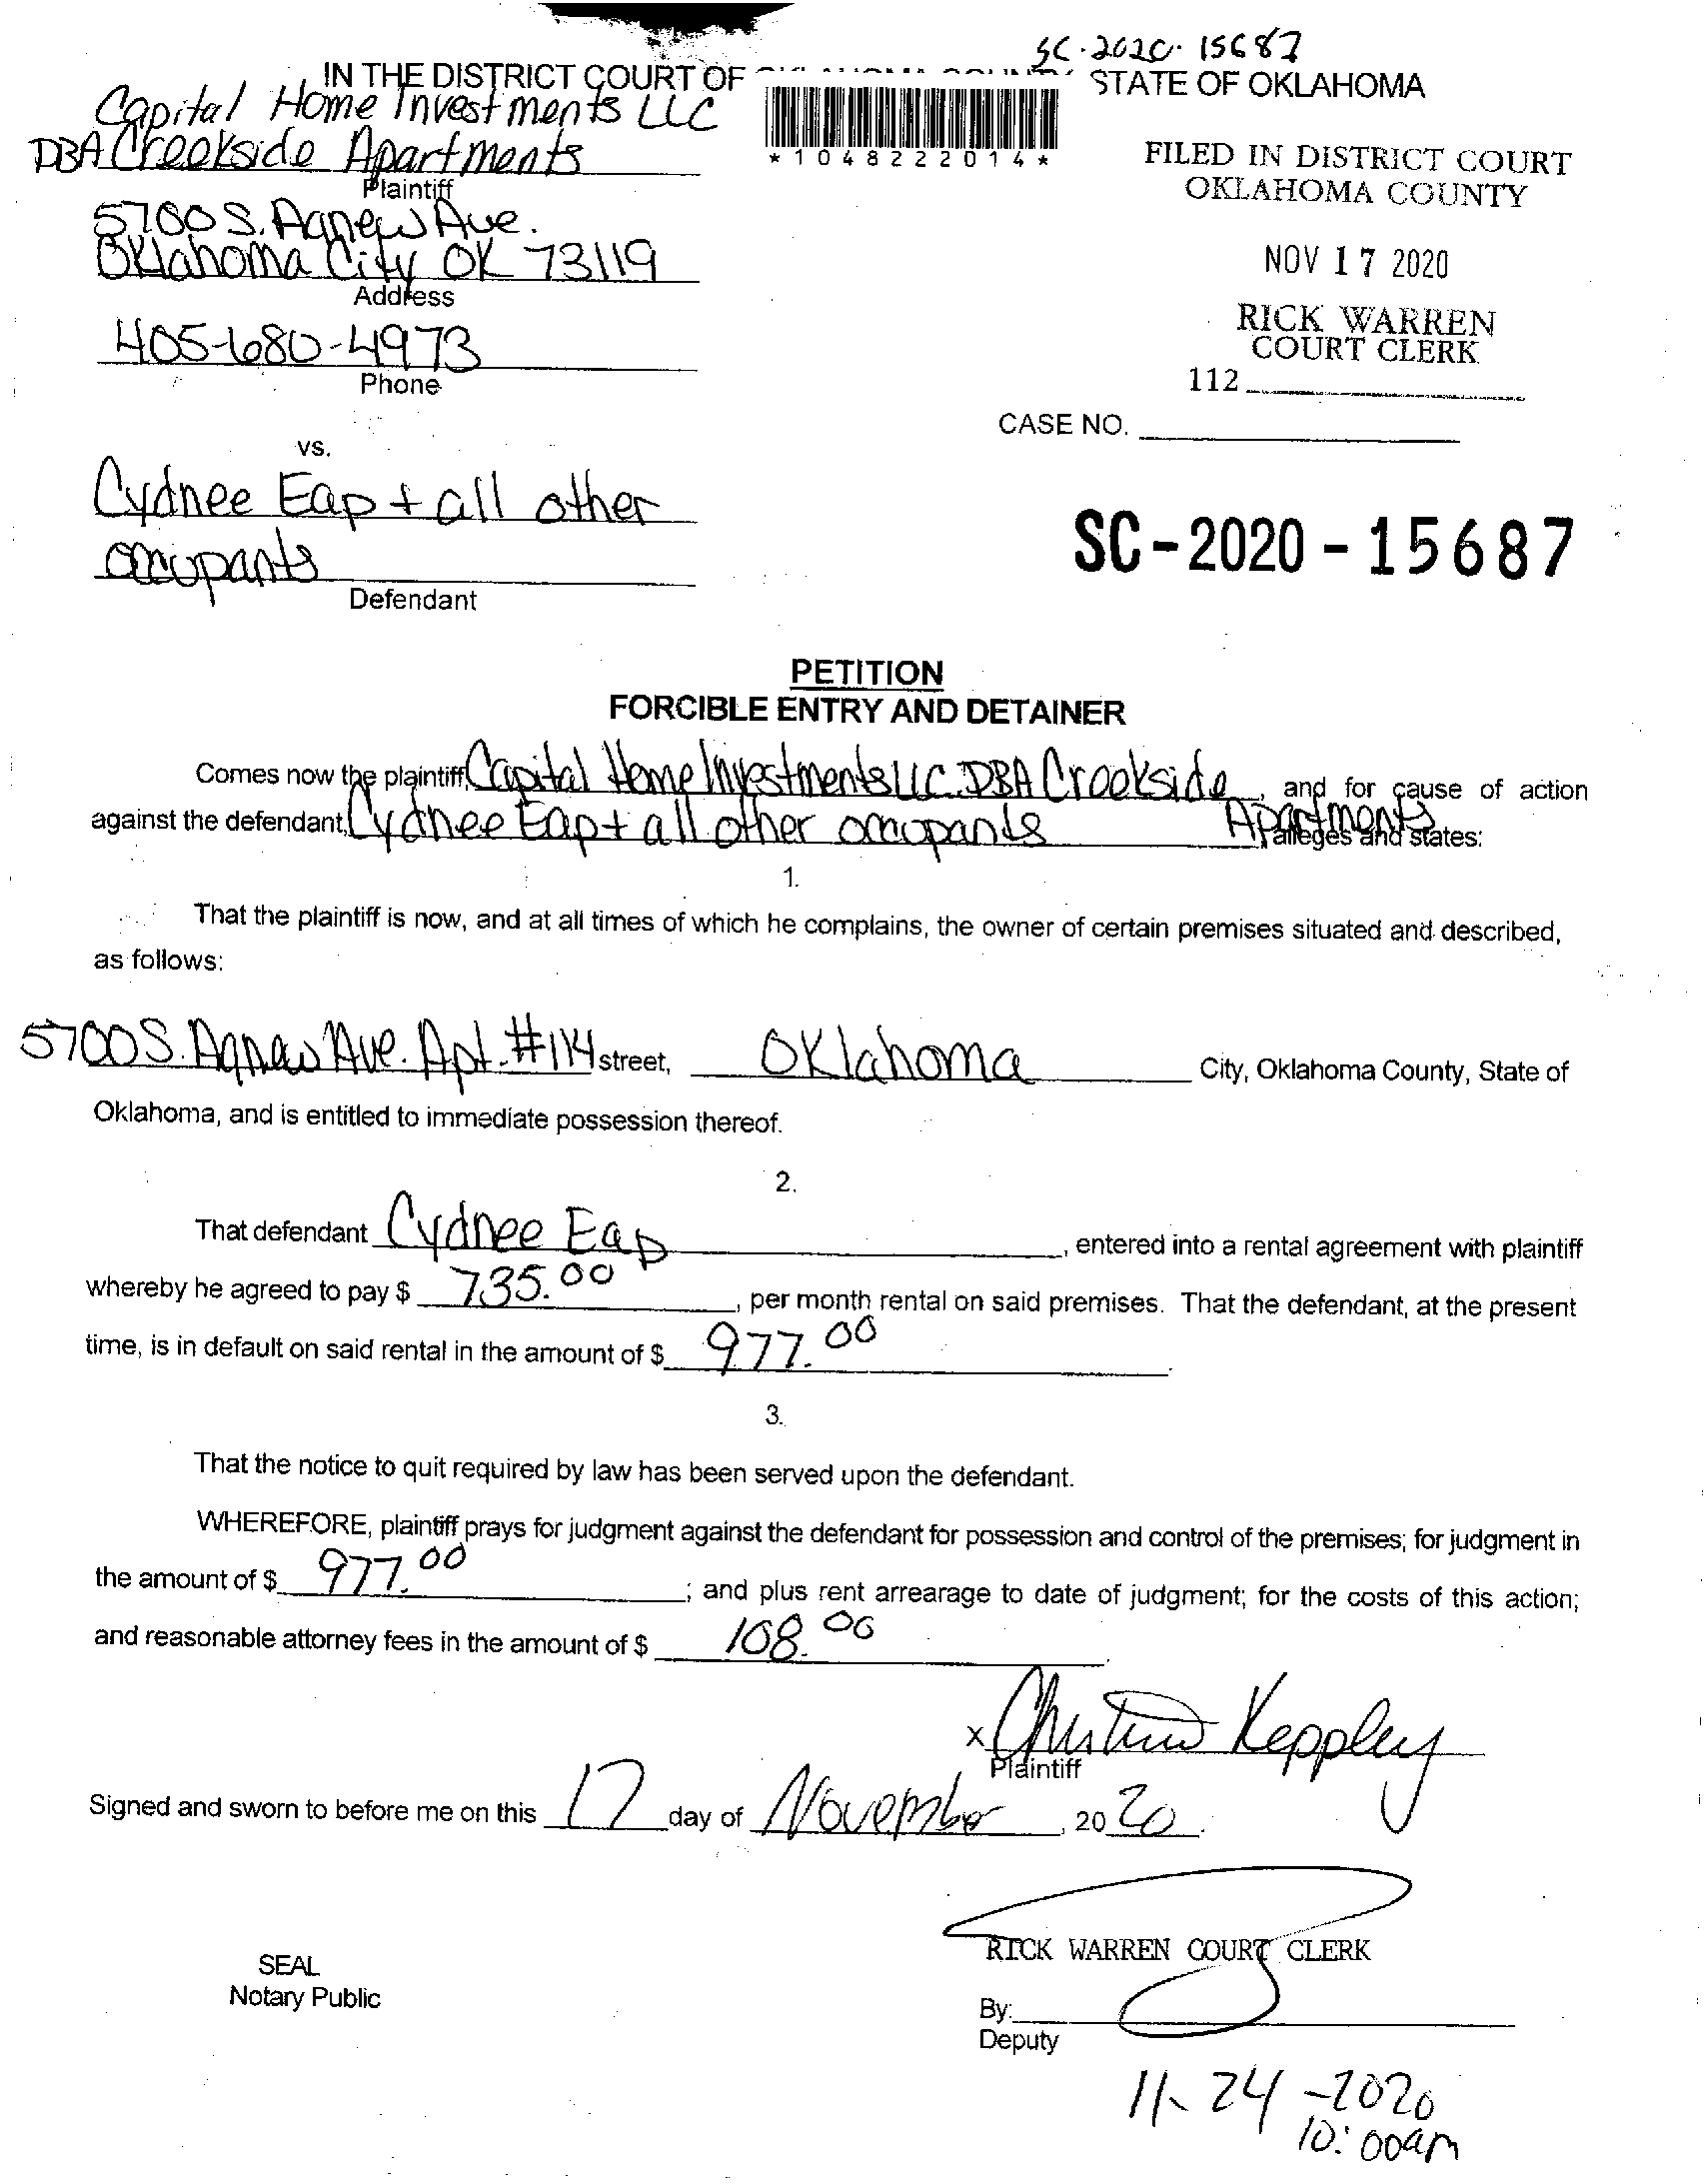 SC-2020-15687
IN THE DISTRICT COURT OF OKLAHOMA COUNTY STATE OF OKLAHOMA
Capital Home Investments LLC
DBA Creekside Apartments
Plaintiff
*1048222014*
FILED IN DISTRICT COURT
OKLAHOMA COUNTY
5700 S. Agnew Ave.
Oklahoma City OK 73119
Address
NOV 17 2020
RICK WARREN
COURT CLERK
405-680-4973
Phone
112
CASE NO.
vs.
Cydnee Eap + all other
occupants
Defendant
SC-2020-15687
PETITION
FORCIBLE ENTRY AND DETAINER
Comes now the plaintiff, Capital Home Investments LLC DBA Creekside Apartments, and for cause of action
against the defendant, Cydnee Eap + all other occupants, alleges and states:
1.
That the plaintiff is now, and at all times of which he complains, the owner of certain premises situated and described,
as follows:
5700 S. Agnew Ave. Apt. #114 street, Oklahoma City, Oklahoma County, State of
Oklahoma, and is entitled to immediate possession thereof.
2.
That defendant Cydnee Eap, entered into a rental agreement with plaintiff
whereby he agreed to pay $ 735.00, per month rental on said premises. That the defendant, at the present
time, is in default on said rental in the amount of $ 977.00.
3.
That the notice to quit required by law has been served upon the defendant.
WHEREFORE, plaintiff prays for judgment against the defendant for possession and control of the premises; for judgment in
the amount of $ 977.00; and plus rent arrearage to date of judgment; for the costs of this action;
and reasonable attorney fees in the amount of $ 108.00.
x Keppley
Plaintiff
Signed and sworn to before me on this 17 day of November, 2020.
RICK WARREN COURT CLERK
SEAL
Notary Public
By:
Deputy
11-24-2020
10:00am